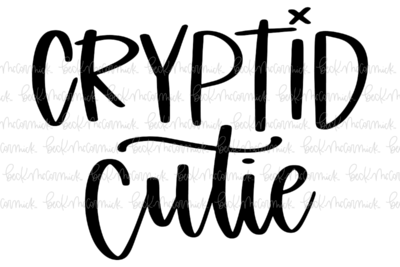 CRYPTID
cutie